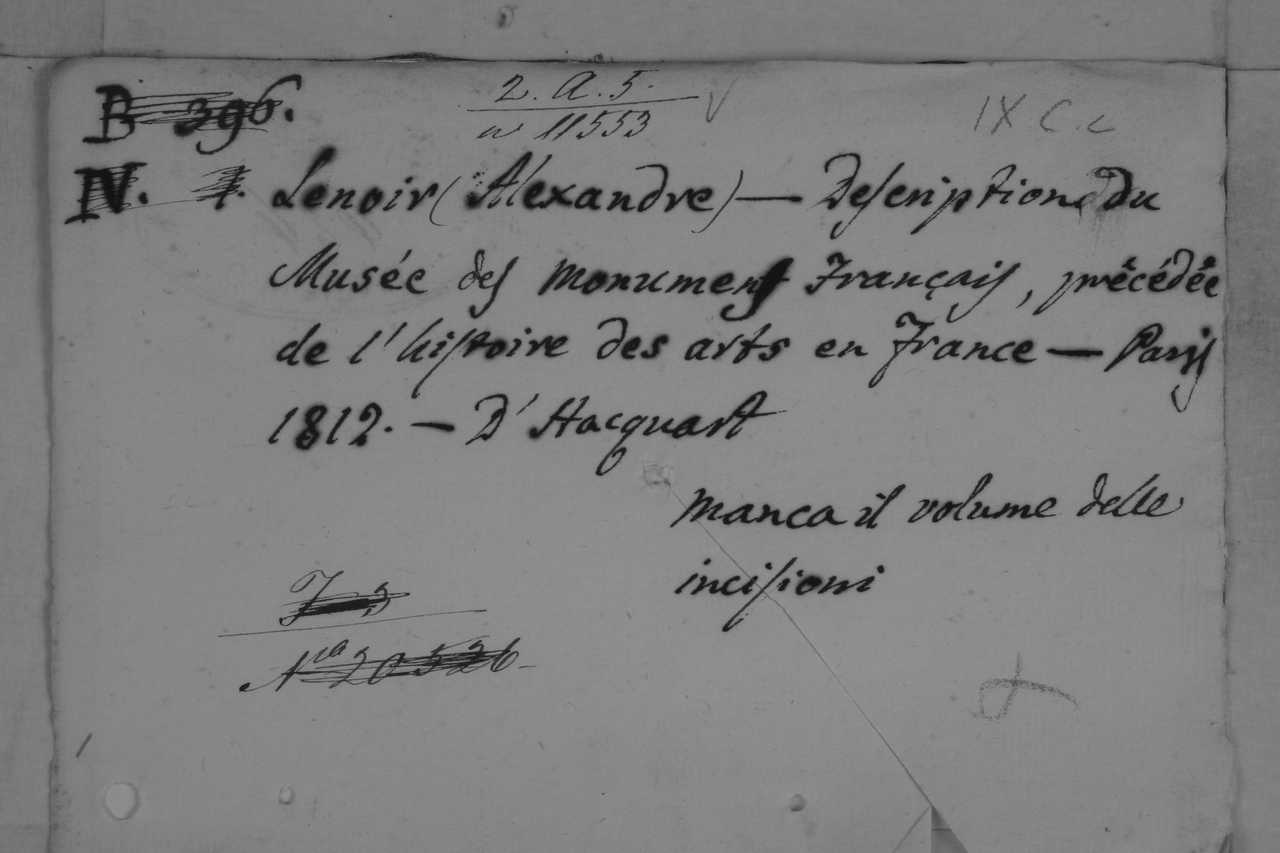 B 396.
2. A. 5.
n 11553
IX C. c
IV. 1.
Lenoir (Alexandre) — Description du
Musée des monumens Français, précédée
de l'histoire des arts en France — Paris
1812. — D'Hacquart
Manca il volume delle
incisioni
N.ro 20526